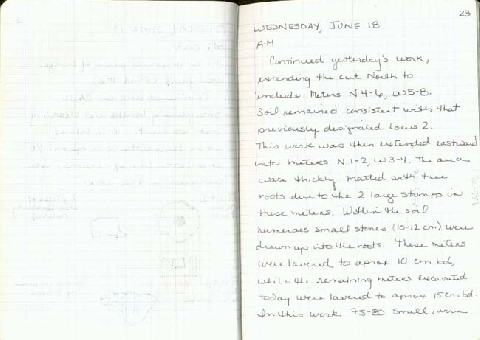 23
WEDNESDAY, JUNE 18
AM
Continued yesterday's work,
extending the cut North to
include Meters N 4-6, W 5-8.
Soil remained consistent with that
previously designated Locus 2.
This work was then extended eastward
into meters N. 1-2, W 3-4. The area
were thickly matted with tree
roots due to the 2 large stumps in
these meters. Within the soil
numerous small stones (10-12 cm) were
drawn up into the roots. These meters
were lowered to aprox 10 cm bd,
while the remaining meters excavated
today were lowered to aprox 15 cm bd.
In this work 75-80 small, worn